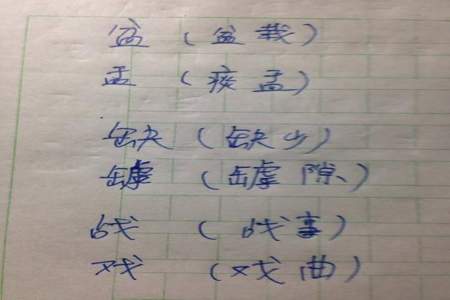 盆（盆栽）
盂（痰盂）
缺（缺少）
罅（罅隙）
战（战事）
戏（戏曲）